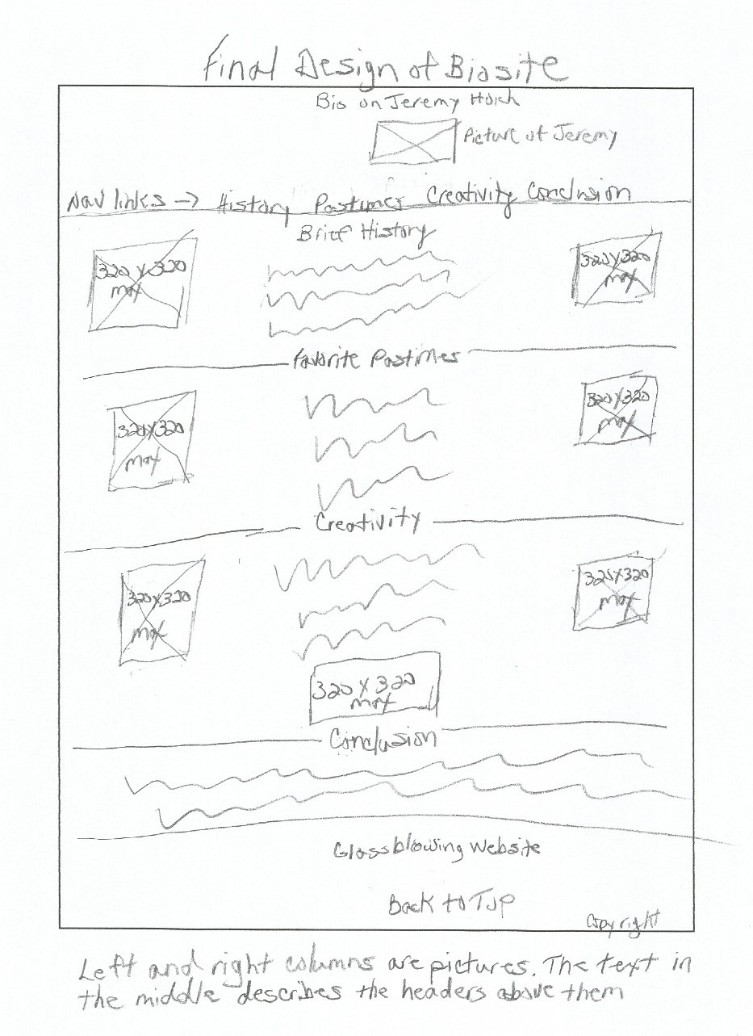 Final Design of Biosite
Bio on Jeremy Hoich
Picture of Jeremy
Nav links → History Pastimes Creativity Conclusion
Brief History
320 x 320
max
320x320
max
Favorite Pastimes
320x320
max
320x320
max
Creativity
320x320
max
320x320
max
320 x 320
max
Conclusion
Glassblowing Website
Back to Top
Copyright
Left and right columns are pictures. The text in
the middle describes the headers above them